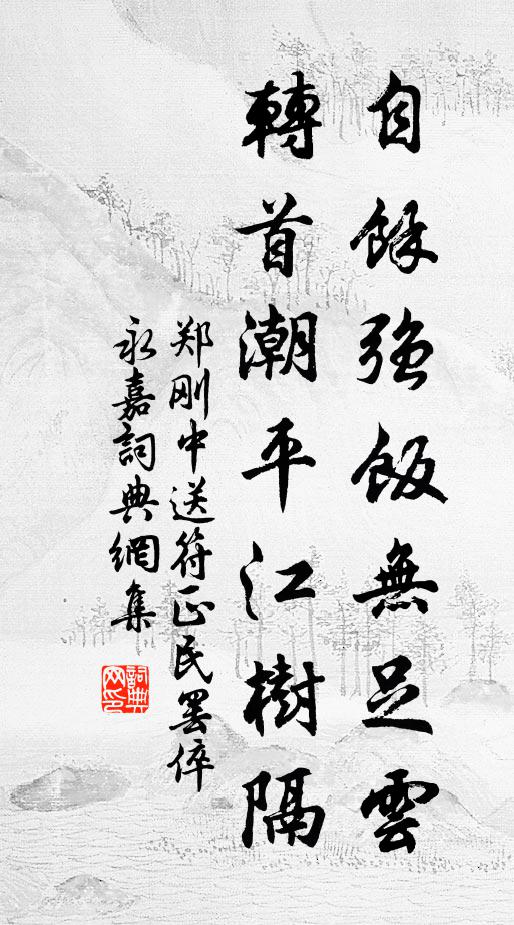 自餘強飯無足雲
轉首潮平江樹隔
郑刚中送符正民罢倅
永嘉詞典網集
詞典网印